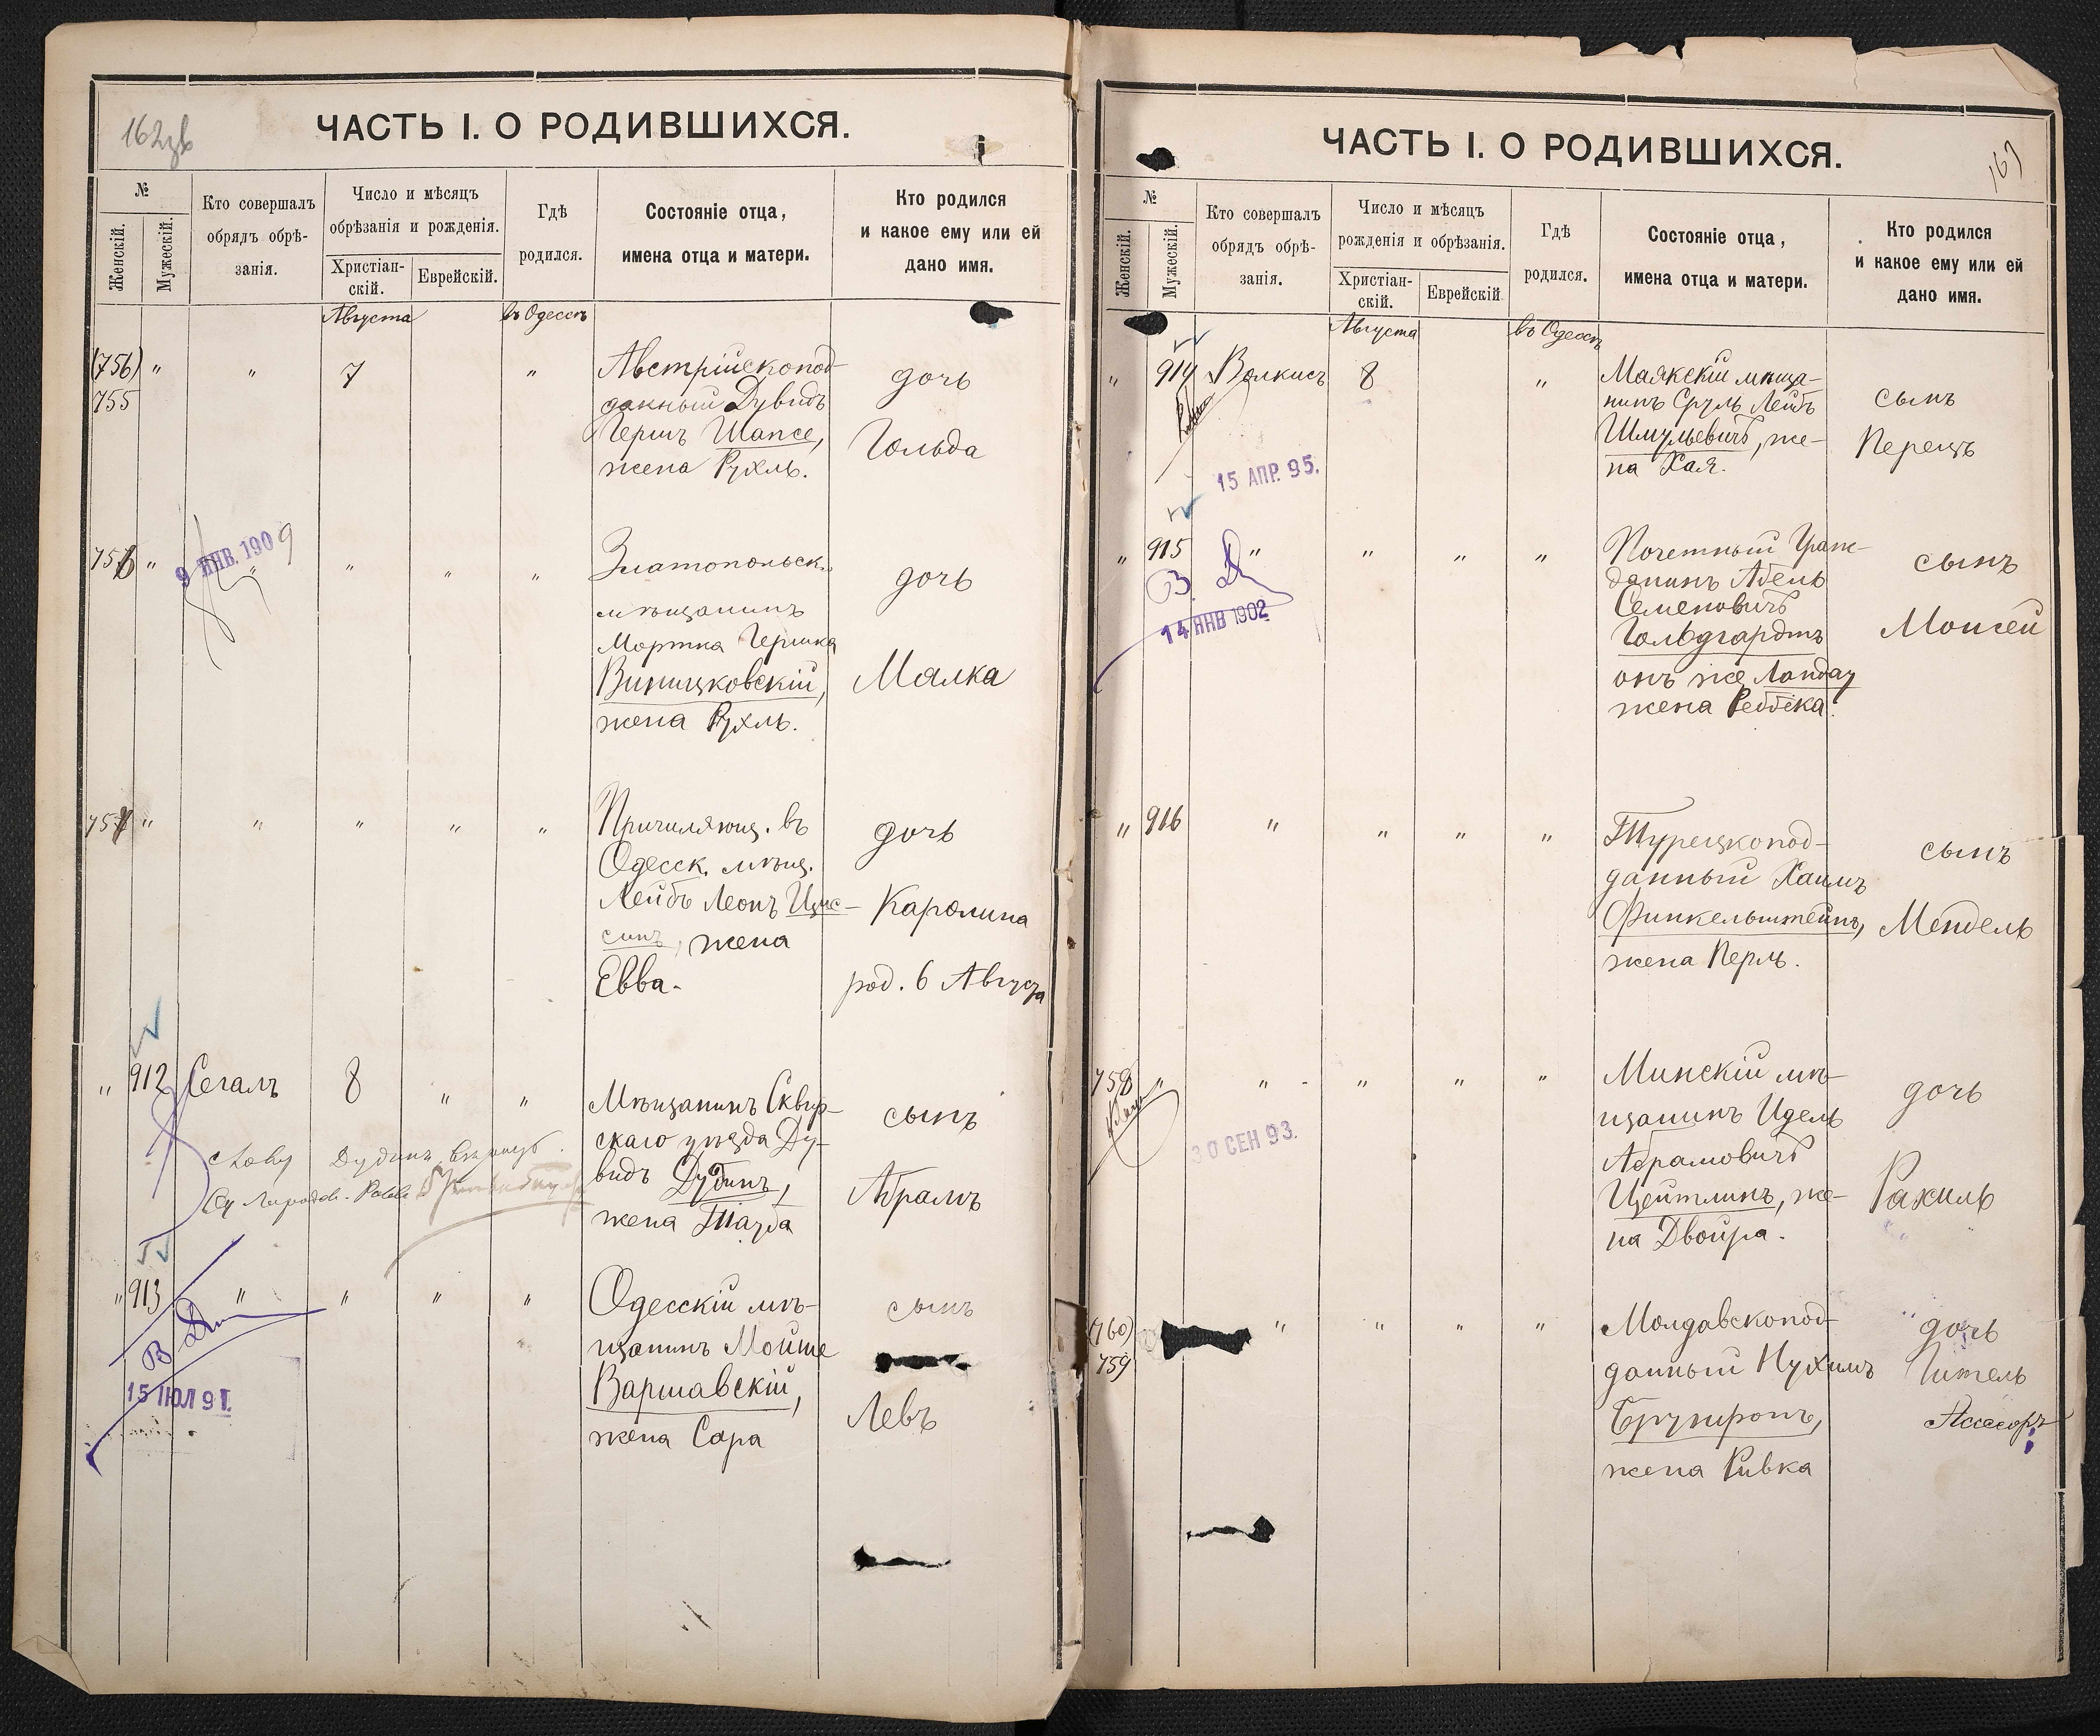 ЧАСТЬ I. О РОДИВШИХСЯ.
№
Женскій.
Мужескій.
Кто совершалъ
обрядъ обрѣ-
занія.
Число и мѣсяцъ
обрѣзанія и рожденія.
Христіан-
скій.
Еврейскій.
Гдѣ
родился.
Состояніе отца,
имена отца и матери.
Кто родился
и какое ему или ей
дано имя.
Августа
въ Одессѣ
(756)
755
"
"
7
"
Австрійскопод-
данный Дувидъ
Гершъ Шапсе,
жена Рухль.
дочь
Гольда
756
"
9 ЯНВ. 1909
"
"
"
"
Златопольск.
мѣщанинъ
Мортка Гершка
Виницковскій,
жена Рухль.
дочь
Малка
757
"
"
"
"
"
Причиляющ. въ
Одесск. мѣщ.
Лейбъ Леонъ Цис-
синъ, жена
Евва.
дочь
Каролина
род. 6 Августа
"
912
Сегалъ
8
"
"
Мѣщанинъ Сквир-
скаго уѣзда Ду-
видъ Дубинъ,
жена Тауба
сынъ
Абрамъ
"
913
"
"
"
"
15 ІЮЛ 91.
Одесскій мѣ-
щанинъ Мойше
Варшавскій,
жена Сара
сынъ
Левъ
ЧАСТЬ I. О РОДИВШИХСЯ.
№
Женскій.
Мужескій.
Кто совершалъ
обрядъ обрѣ-
занія.
Число и мѣсяцъ
рожденія и обрѣзанія.
Христіан-
скій.
Еврейскій
Гдѣ
родился.
Состояніе отца,
имена отца и матери.
Кто родился
и какое ему или ей
дано имя.
Августа
въ Одессѣ
"
914
Волкисъ
8
"
15 АПР. 95.
Маякскій мѣща-
нинъ Сруль Лейбъ
Шмульевичъ, же-
на Хая.
сынъ
Перецъ
"
915
"
"
"
"
14 ЯНВ 1902
Почетный Граж-
данинъ Абель
Семеновичъ
Гольдгардтъ
онъ же Ландау
жена Реббека.
сынъ
Моисей
"
916
"
"
"
"
Турецкопод-
данный Хаимъ
Финкельштейнъ,
жена Перль.
сынъ
Мендель
758
"
"
"
"
"
30 СЕН 93.
Минскій мѣ-
щанинъ Идель
Абрамовичъ
Цейтлинъ, же-
на Двойра.
дочь
Рахиль
(760)
759
"
"
"
"
Молдавскопод-
данный Нухимъ
жена Ривка
дочь
Гитель